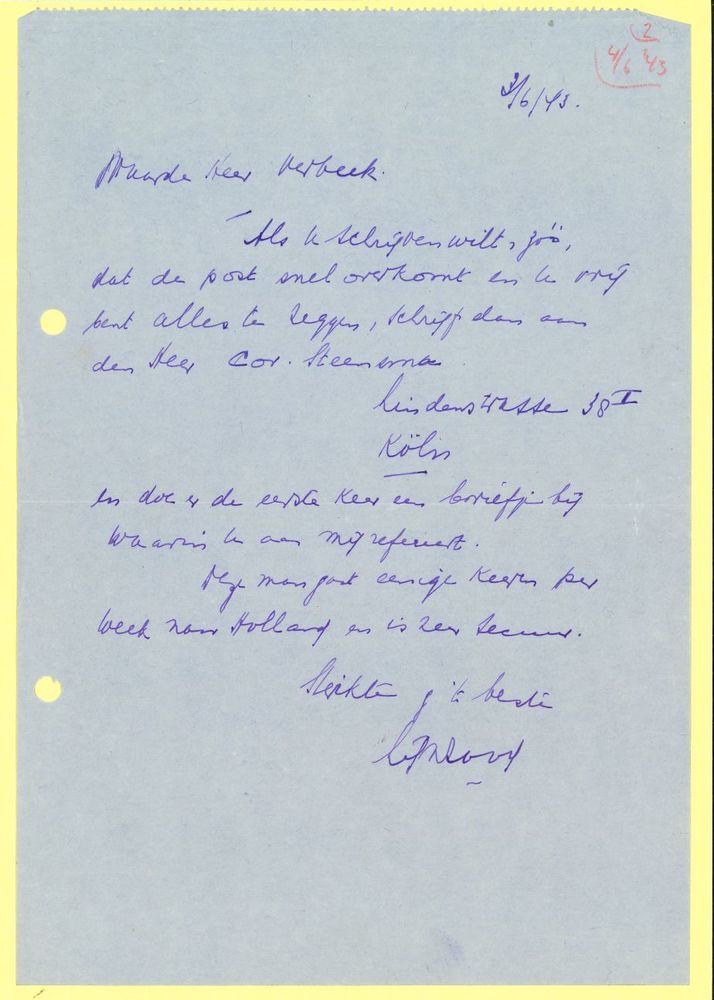 2
4/6 '43
3/6/43.
Waarde Heer Verbeek.
Als U schrijven wilt, zóó,
dat de post snel overkomt en U vrij
bent alles te zeggen, schrijf dan aan
den Heer Cor. Steensma
Lindenstrasse 38 II
Köln
en doe er de eerste keer een briefje bij
waarin U aan mij refereert.
Deze man gaat eenige keeren per
week naar Holland en is zeer secuur.
Sterkte 't beste